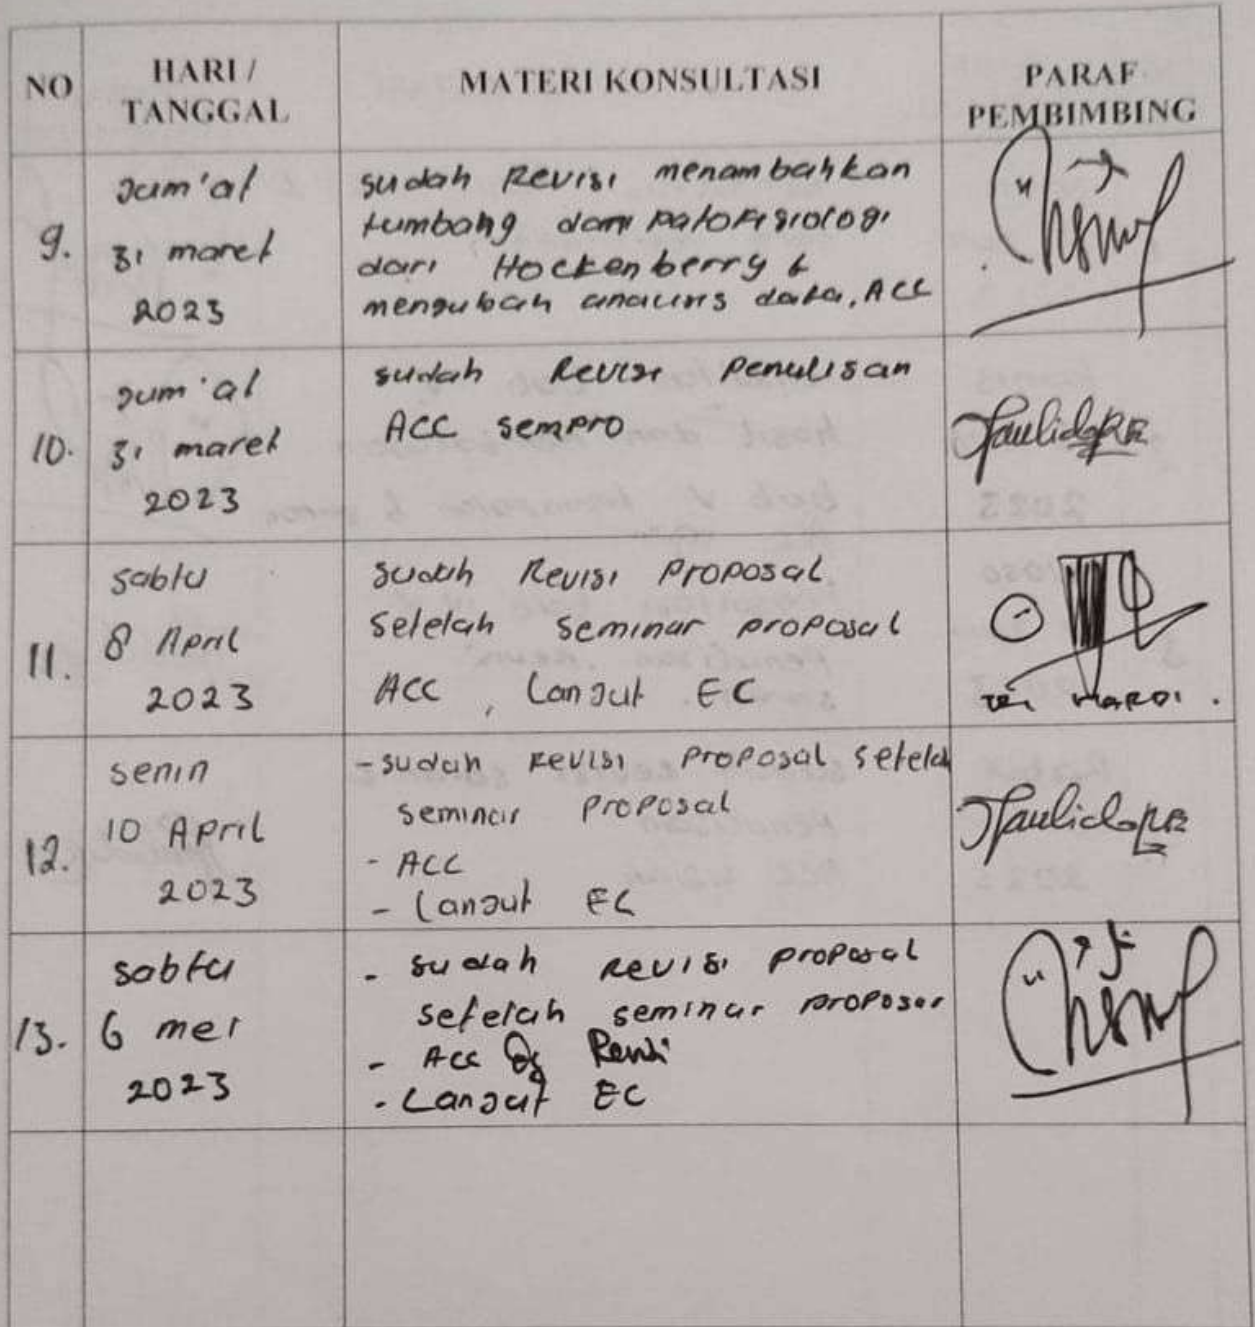 NO
HARI /
TANGGAL
MATERI KONSULTASI
PARAF
PEMBIMBING
9.
Jum'at
31 maret
2023
sudah Revisi menambahkan
tumbang dan patofisiologi
dari Hockenberry &
mengubah analisis data, ACC
10.
Jum'at
31 maret
2023
sudah Revisi Penulisan
ACC sempro
11.
sabtu
8 April
2023
sudah Revisi Proposal
Setelah seminar proposal
ACC, Lanjut EC
Tri MARDI.
12.
senin
10 April
2023
- sudah Revisi Proposal setelah
seminar Proposal
- ACC
- Lanjut EC
13.
sabtu
6 mei
2023
- sudah Revisi proposal
setelah seminar proposal
- Acc
- Lanjut EC